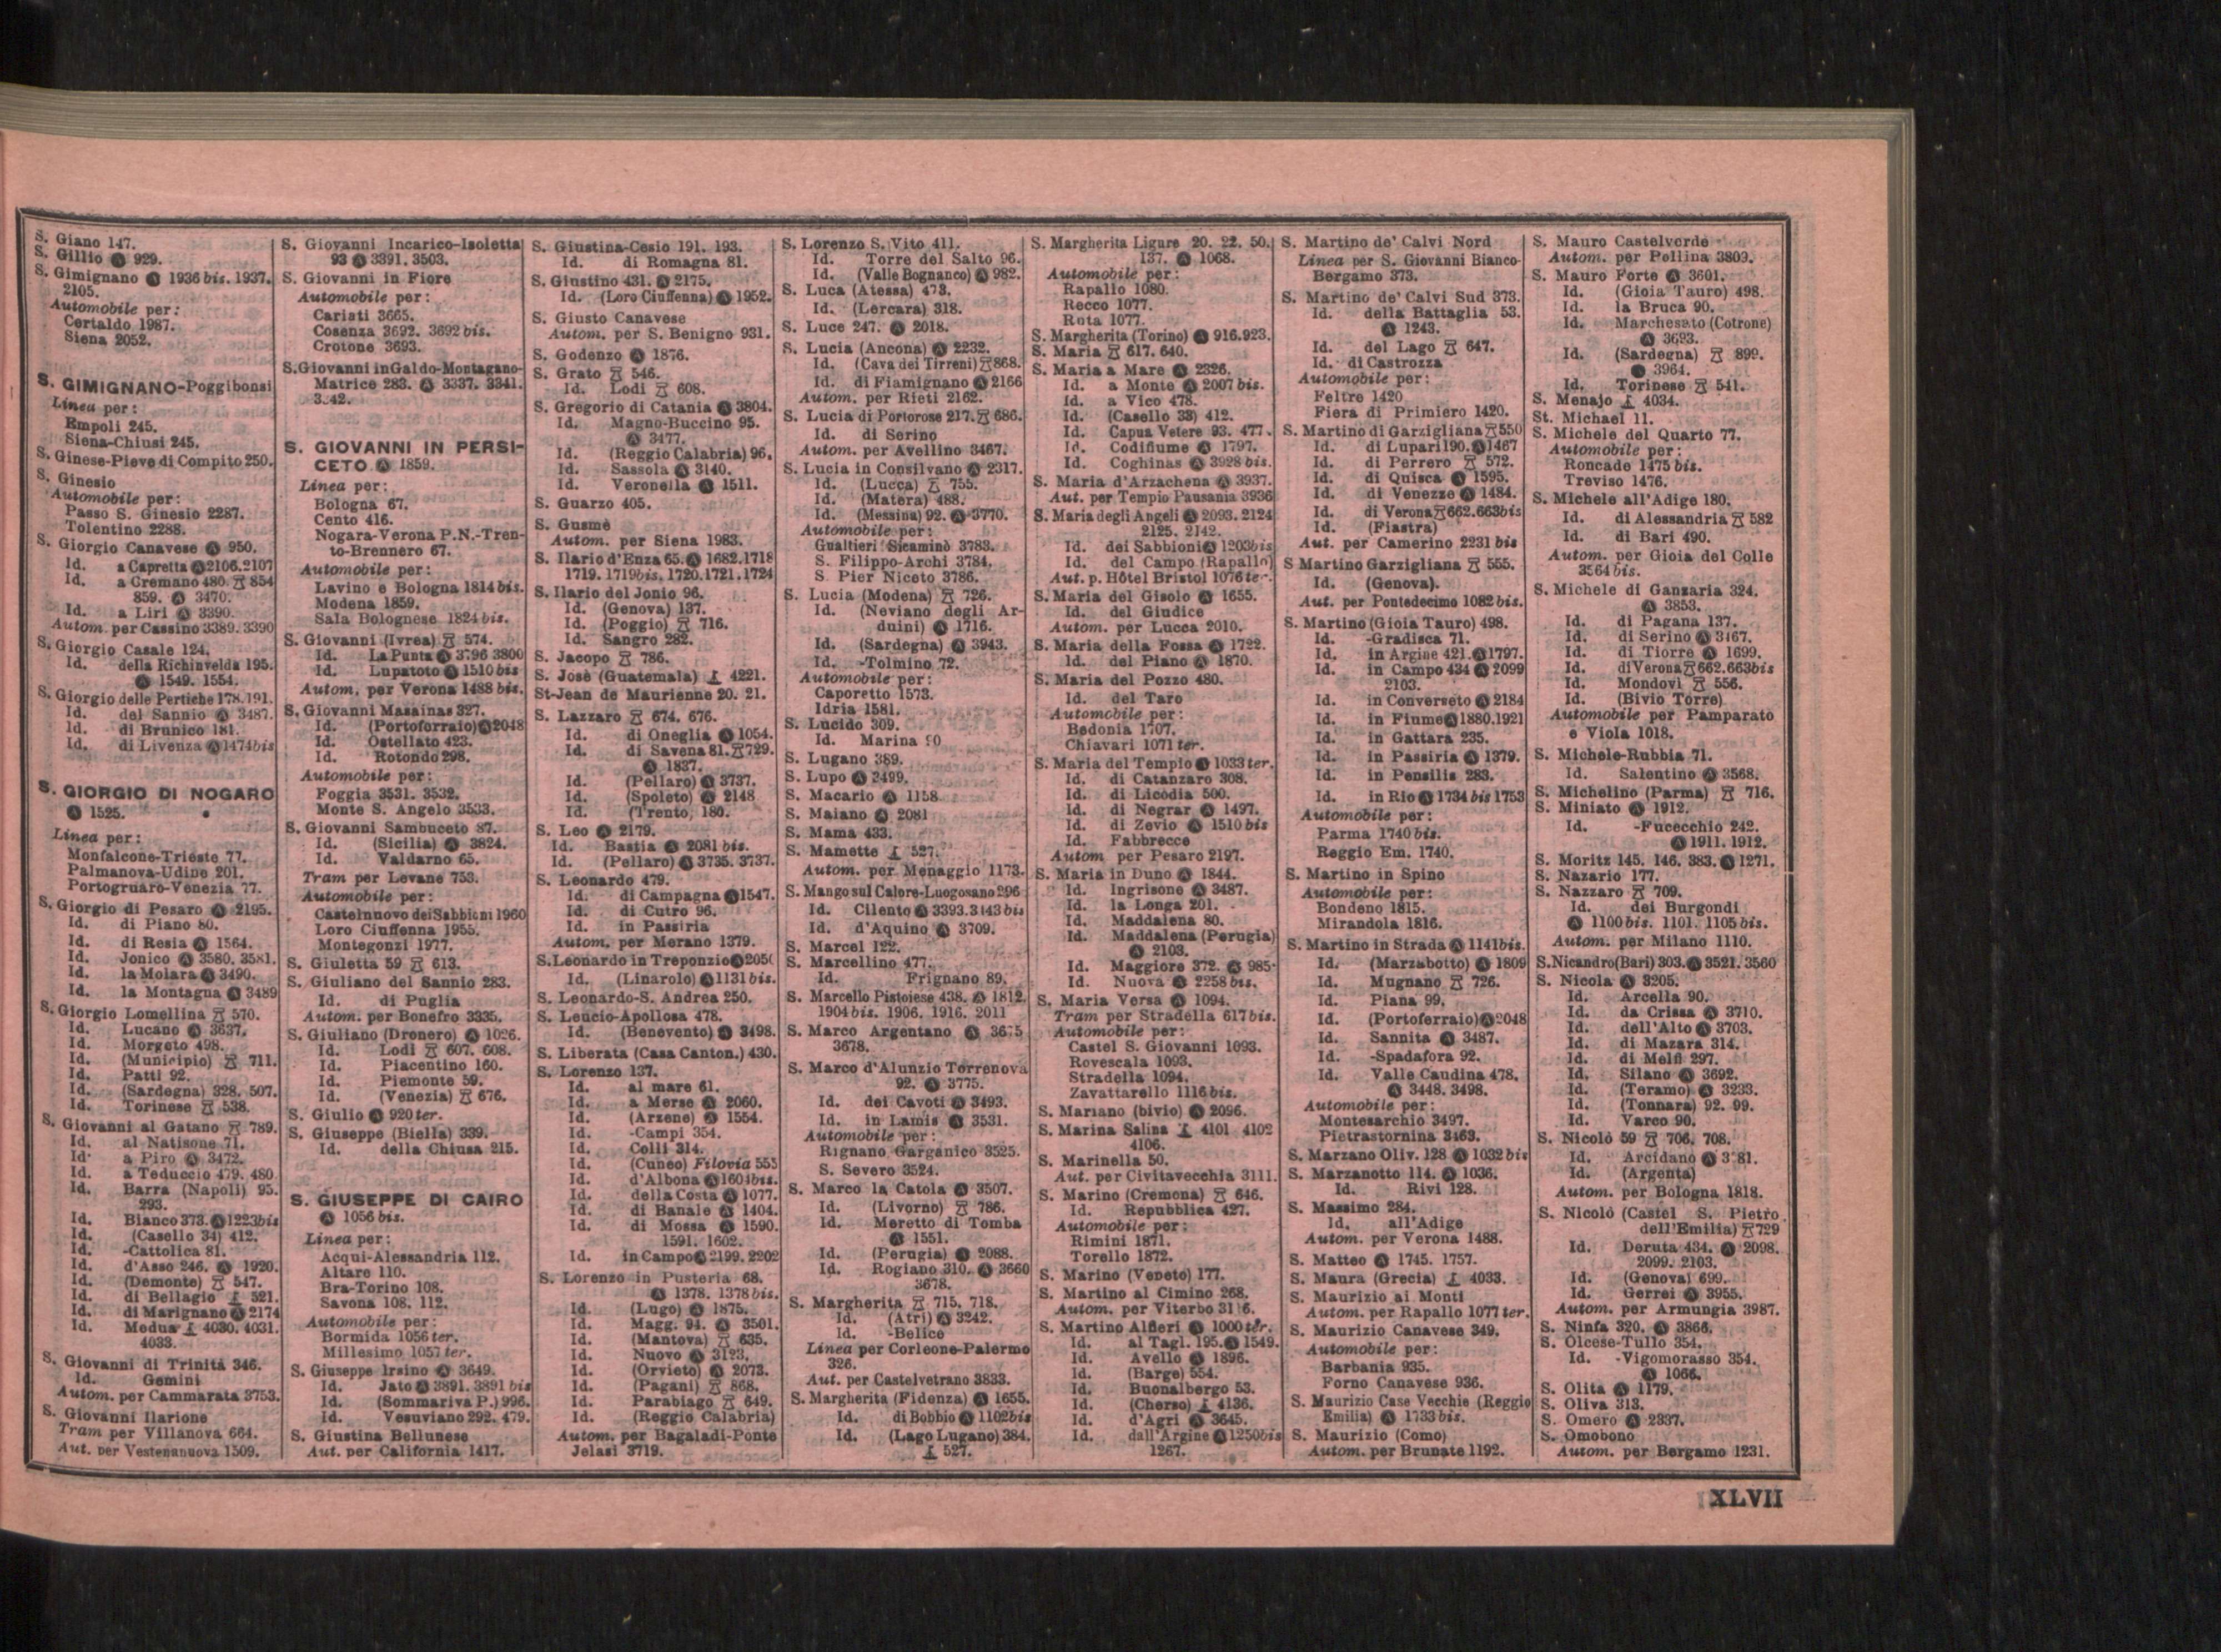 S. Giano 147.
S. Gillio Ⓐ 929.
S. Gimignano Ⓐ 1936 bis. 1937.
2105.
Automobile per:
Certaldo 1987.
Siena 2052.
S. GIMIGNANO-Poggibonsi
Linea per:
Empoli 245.
Siena-Chiusi 245.
S. Ginese-Pieve di Compito 250.
S. Ginesio
Automobile per:
Passo S. Ginesio 2287.
Tolentino 2288.
S. Giorgio Canavese Ⓐ 950.
Id. a Capretta Ⓐ 2106.2107
Id. a Cremano 480. 854
859. Ⓐ 3470.
Id. a Liri Ⓐ 3390.
Autom. per Cassino 3389. 3390
S. Giorgio Casale 124.
Id. della Richinvelda 195.
Ⓐ 1549. 1554.
S. Giorgio delle Pertiche 178.191.
Id. del Sannio Ⓐ 3487.
Id. di Brunico 181.
Id. di Livenza Ⓐ 1474bis
S. GIORGIO DI NOGARO
Ⓐ 1525.
Linea per:
Monfalcone-Trieste 77.
Palmanova-Udine 201.
Portogruaro-Venezia 77.
S. Giorgio di Pesaro Ⓐ 2195.
Id. di Piano 80.
Id. di Resia Ⓐ 1564.
Id. Jonico Ⓐ 3580. 3581.
Id. la Molara Ⓐ 3490.
Id. la Montagna Ⓐ 3489
S. Giorgio Lomellina 570.
Id. Lucano Ⓐ 3637.
Id. Morgeto 498.
Id. (Municipio) 711.
Id. Patti 92.
Id. (Sardegna) 328. 507.
Id. Torinese 538.
S. Giovanni al Gatano 789.
Id. al Natisone 71.
Id. a Piro Ⓐ 3472.
Id. a Teduccio 479. 480
Id. Barra (Napoli) 95.
293.
Id. Bianco 373. Ⓐ 1223bis
Id. (Casello 34) 412.
Id. -Cattolica 81.
Id. d'Asso 246. Ⓐ 1920.
Id. (Demonte) 547.
Id. di Bellagio 521.
Id. di Marignano Ⓐ 2174
Id. Medua 4030. 4031.
4033.
S. Giovanni di Trinità 346.
Id. Gemini
Autom. per Cammarata 3753.
S. Giovanni Ilarione
Tram per Villanova 664.
Aut. per Vestenanuova 1509.
S. Giovanni Incarico-Isoletta
93 Ⓐ 3391. 3503.
S. Giovanni in Fiore
Automobile per:
Cariati 3665.
Cosenza 3692. 3692 bis.
Crotone 3693.
S. Giovanni in Galdo-Montagano-
Matrice 283. Ⓐ 3337. 3341.
3342.
S. GIOVANNI IN PERSI-
CETO Ⓐ 1859.
Linea per:
Bologna 67.
Cento 416.
Nogara-Verona P.N.-Tren-
to-Brennero 67.
Automobile per:
Lavino e Bologna 1814 bis.
Modena 1859.
Sala Bolognese 1824 bis.
S. Giovanni (Ivrea) 574.
Id. La Punta Ⓐ 3796 3800
Id. Lupatoto Ⓐ 1510 bis
Autom. per Verona 1488 bis.
S. Giovanni Masainas 327.
Id. (Portoferraio) Ⓐ 2048
Id. Ostellato 423.
Id. Rotondo 298.
Automobile per:
Foggia 3531. 3532.
Monte S. Angelo 3533.
S. Giovanni Sambuceto 87.
Id. (Sicilia) Ⓐ 3824.
Id. Valdarno 65.
Tram per Levane 753.
Automobile per:
Castelnuovo dei Sabbioni 1960
Loro Ciuffenna 1955.
Montegonzi 1977.
S. Giuletta 59 613.
S. Giuliano del Sannio 283.
Id. di Puglia
Autom. per Bonefro 3335.
S. Giuliano (Dronero) Ⓐ 1026.
Id. Lodi 607. 608.
Id. Piacentino 160.
Id. Piemonte 59.
Id. (Venezia) 676.
S. Giulio Ⓐ 920 ter.
S. Giuseppe (Biella) 339.
Id. della Chiusa 215.
S. GIUSEPPE DI CAIRO
Ⓐ 1056 bis.
Linea per:
Acqui-Alessandria 112.
Altare 110.
Bra-Torino 108.
Savona 108. 112.
Automobile per:
Bormida 1056 ter.
Millesimo 1057 ter.
S. Giuseppe Irsino Ⓐ 3649.
Id. Jato Ⓐ 3891. 3891 bis
Id. (Sommariva P.) 996.
Id. Vesuviano 292. 479.
S. Giustina Bellunese
Aut. per California 1417.
S. Giustina-Cesio 191. 193.
Id. di Romagna 81.
S. Giustino 431. Ⓐ 2175.
Id. (Loro Ciuffenna) Ⓐ 1952.
S. Giusto Canavese
Autom. per S. Benigno 931.
S. Godenzo Ⓐ 1876.
S. Grato 546.
Id. Lodi 608.
S. Gregorio di Catania Ⓐ 3804.
Id. Magno-Buccino 95.
Ⓐ 3477.
Id. (Reggio Calabria) 96.
Id. Sassola Ⓐ 3140.
Id. Veronella Ⓐ 1511.
S. Guarzo 405.
S. Gusmè
Autom. per Siena 1983.
S. Ilario d'Enza 65. Ⓐ 1682.1718
1719. 1719bis. 1720.1721.1724
S. Ilario del Jonio 96.
Id. (Genova) 137.
Id. (Poggio) 716.
Id. Sangro 282.
S. Jacopo 786.
S. Josè (Guatemala) 4221.
St-Jean de Maurienne 20. 21.
S. Lazzaro 674. 676.
Id. di Oneglia Ⓐ 1054.
Id. di Savena 81. 729.
Ⓐ 1837.
Id. (Pellaro) Ⓐ 3737.
Id. (Spoleto) Ⓐ 2148
Id. (Trento, 180.
S. Leo Ⓐ 2179.
Id. Bastia Ⓐ 2081 bis.
Id. (Pellaro) Ⓐ 3735. 3737.
S. Leonardo 479.
Id. di Campagna Ⓐ 1547.
Id. di Cutro 96.
Id. in Passiria
Autom. per Merano 1379.
S. Leonardo in Treponzio Ⓐ
Id. (Linarolo) Ⓐ 1131 bis.
S. Leonardo-S. Andrea 250.
S. Leucio-Apollosa 478.
Id. (Benevento) Ⓐ 3498.
S. Liberata (Casa Canton.) 430.
S. Lorenzo 137.
Id. al mare 61.
Id. a Merse Ⓐ 2060.
Id. (Arzene) Ⓐ 1554.
Id. -Campi 354.
Id. Colli 314.
Id. (Cuneo) Filovia 555
Id. d'Albona Ⓐ 1604bis.
Id. della Costa Ⓐ 1077.
Id. di Banale Ⓐ 1404.
Id. di Mossa Ⓐ 1590.
1591. 1602.
Id. in Campo Ⓐ 2199. 2202
S. Lorenzo in Pusteria 68.
Ⓐ 1378. 1378 bis.
Id. (Lugo) Ⓐ 1875.
Id. Magg. 94. Ⓐ 3501.
Id. (Mantova) 635.
Id. Nuovo Ⓐ 3123.
Id. (Orvieto) Ⓐ 2073.
Id. (Pagani) 868.
Id. Parabiago 649.
Id. (Reggio Calabria)
Autom. per Bagaladi-Ponte
Jelasi 3719.
S. Lorenzo S. Vito 411.
Id. Torre del Salto 96.
Id. (Valle Bognanco) Ⓐ 982.
S. Luca (Atessa) 473.
Id. (Lercara) 318.
S. Luce 247. Ⓐ 2018.
S. Lucia (Ancona) Ⓐ 2232.
Id. (Cava dei Tirreni) 868.
Id. di Fiamignano Ⓐ 2166
Autom. per Rieti 2162.
S. Lucia di Portorose 217. 686.
Id. di Serino
Autom. per Avellino 3467.
S. Lucia in Consilvano Ⓐ 2317.
Id. (Lucca) 755.
Id. (Matera) 488.
Id. (Messina) 92. Ⓐ 3770.
Automobile per:
Gualtieri Sicaminò 3783.
S. Filippo-Archi 3784.
S. Pier Niceto 3786.
S. Lucia (Modena) 726.
Id. (Neviano degli Ar-
duini) Ⓐ 1716.
Id. (Sardegna) Ⓐ 3943.
Id. -Tolmino 72.
Automobile per:
Caporetto 1573.
Idria 1581.
S. Lucido 309.
Id. Marina 90
S. Lugano 389.
S. Lupo Ⓐ 3499.
S. Macario Ⓐ 1158
S. Maiano Ⓐ 2081
S. Mama 433.
S. Mamette 527.
Autom. per Menaggio 1173.
S. Mango sul Calore-Luogosano 296
Id. Cilento Ⓐ 3393.3443 bis
Id. d'Aquino Ⓐ 3709.
S. Marcel 122.
S. Marcellino 477.
Id. Frignano 89.
S. Marcello Pistoiese 438. Ⓐ 1812.
1904 bis. 1906. 1916. 2011
S. Marco Argentano Ⓐ 3675
3678.
S. Marco d'Alunzio Torrenova
92. Ⓐ 3775.
Id. dei Cavoti Ⓐ 3493.
Id. in Lamis Ⓐ 3531.
Automobile per:
Rignano Garganico 3525.
S. Severo 3524.
S. Marco la Catola Ⓐ 3507.
Id. (Livorno) 786.
Id. Meretto di Tomba
Ⓐ 1551.
Id. (Perugia) Ⓐ 2088.
Id. Rogiano 310. Ⓐ 3660
3678.
S. Margherita 715. 718.
Id. (Atri) Ⓐ 3242.
Id. -Belice
Linea per Corleone-Palermo
326.
Aut. per Castelvetrano 3833.
S. Margherita (Fidenza) Ⓐ 1655.
Id. di Bobbio Ⓐ 1102bis
Id. (Lago Lugano) 384.
527.
S. Margherita Ligure 20. 22. 50.
137. Ⓐ 1068.
Automobile per:
Rapallo 1080.
Recco 1077.
Ruta 1077.
S. Margherita (Torino) Ⓐ 916.923.
S. Maria 617. 640.
S. Maria a Mare Ⓐ 2326.
Id. a Monte Ⓐ 2007 bis.
Id. a Vico 478.
Id. (Casello 33) 412.
Id. Capua Vetere 93. 477.
Id. Codifiume Ⓐ 1797.
Id. Coghinas Ⓐ 3928 bis.
S. Maria d'Arzachena Ⓐ 3937.
Aut. per Tempio Pausania 3936
S. Maria degli Angeli Ⓐ 2093. 2124
2125. 2142.
Id. dei Sabbioni Ⓐ 1203bis
Id. del Campo (Rapallo)
Aut. p. Hôtel Bristol 1076 ter.
S. Maria del Gisolo Ⓐ 1655.
Id. del Giudice
Autom. per Lucca 2010.
S. Maria della Fossa Ⓐ 1722.
Id. del Piano Ⓐ 1870.
S. Maria del Pozzo 480.
Id. del Taro
Automobile per:
Bedonia 1707.
Chiavari 1071 ter.
S. Maria del Tempio Ⓐ 1033 ter.
Id. di Catanzaro 308.
Id. di Licodia 500.
Id. di Negrar Ⓐ 1497.
Id. di Zevio Ⓐ 1510 bis
Id. Fabbrecce
Autom per Pesaro 2197.
S. Maria in Duno Ⓐ 1844.
Id. Ingrisone Ⓐ 3487.
Id. la Longa 201.
Id. Maddalena 80.
Id. Maddalena (Perugia)
Ⓐ 2103.
Id. Maggiore 372. Ⓐ 985.
Id. Nuova Ⓐ 2258 bis.
S. Maria Versa Ⓐ 1094.
Tram per Stradella 617 bis.
Automobile per:
Castel S. Giovanni 1093.
Rovescala 1093.
Stradella 1094.
Zavattarello 1116 bis.
S. Mariano (bivio) Ⓐ 2096.
S. Marina Salina 4101 4102
4106.
S. Marinella 50.
Aut. per Civitavecchia 3111.
S. Marino (Cremona) 646.
Id. Repubblica 427.
Automobile per:
Rimini 1871.
Torello 1872.
S. Marino (Veneto) 177.
S. Martino al Cimino 268.
Autom. per Viterbo 3116.
S. Martino Alfieri Ⓐ 1000 ter.
Id. al Tagl. 195. Ⓐ 1549.
Id. Avello Ⓐ 1896.
Id. (Barge) 554.
Id. Buonalbergo 53.
Id. (Cherso) 4136.
Id. d'Agri Ⓐ 3645.
Id. dall'Argine Ⓐ 1250bis
1267.
S. Martino de' Calvi Nord
Linea per S. Giovanni Bianco-
Bergamo 373.
S. Martino de' Calvi Sud 373.
Id. della Battaglia 53.
Ⓐ 1243.
Id. del Lago 647.
Id. di Castrozza
Automobile per:
Feltre 1420
Fiera di Primiero 1420.
S. Martino di Garzigliana 550
Id. di Lupari 190. Ⓐ 1467
Id. di Perrero 572.
Id. di Quisca Ⓐ 1595.
Id. di Venezze Ⓐ 1484.
Id. di Verona 662.663bis
Id. (Fiastra)
Aut. per Camerino 2231 bis
S Martino Garzigliana 555.
Id. (Genova).
Aut. per Pontedecimo 1082 bis.
S. Martino (Gioia Tauro) 498.
Id. -Gradisca 71.
Id. in Argine 421. Ⓐ 1797.
Id. in Campo 434 Ⓐ 2099
2103.
Id. in Converseto Ⓐ 2184
Id. in Fiume Ⓐ 1880.1921
Id. in Gattara 235.
Id. in Passiria Ⓐ 1379.
Id. in Pensilis 283.
Id. in Rio Ⓐ 1734 bis 1753
Automobile per:
Parma 1740 bis.
Reggio Em. 1740.
S. Martino in Spino
Automobile per:
Bondeno 1815.
Mirandola 1816.
S. Martino in Strada Ⓐ 1141bis.
Id. (Marzabotto) Ⓐ 1809
Id. Mugnano 726.
Id. Piana 99.
Id. (Portoferraio) Ⓐ 2048
Id. Sannita Ⓐ 3487.
Id. -Spadafora 92.
Id. Valle Caudina 478.
Ⓐ 3448. 3498.
Automobile per:
Montesarchio 3497.
Pietrastornina 3463.
S. Marzano Oliv. 128 Ⓐ 1032 bis
S. Marzanotto 114. Ⓐ 1036.
Id. Rivi 128.
S. Massimo 284.
Id. all'Adige
Autom. per Verona 1488.
S. Matteo Ⓐ 1745. 1757.
S. Maura (Grecia) 4033.
S. Maurizio ai Monti
Autom. per Rapallo 1077 ter.
S. Maurizio Canavese 349.
Automobile per:
Barbania 935.
Forno Canavese 936.
S. Maurizio Case Vecchie (Reggio
Emilia) Ⓐ 1733 bis.
S. Maurizio (Como)
Autom. per Brunate 1192.
S. Mauro Castelverde
Autom. per Pollina 3809.
S. Mauro Forte Ⓐ 3601.
Id. (Gioia Tauro) 498.
Id. la Bruca 90.
Id. Marchesato (Cotrone)
Ⓐ 3693.
Id. (Sardegna) 899.
Ⓐ 3964.
Id. Torinese 541.
S. Menajo 4034.
St. Michael 11.
S. Michele del Quarto 77.
Automobile per:
Roncade 1475 bis.
Treviso 1476.
S. Michele all'Adige 180.
Id. di Alessandria 582
Id. di Bari 490.
Autom. per Gioia del Colle
3564 bis.
S. Michele di Ganzaria 324.
Ⓐ 3853.
Id. di Pagana 137.
Id. di Serino Ⓐ 3467.
Id. di Tiorre Ⓐ 1699.
Id. di Verona 662.663bis
Id. Mondovì 556.
Id. (Bivio Torre)
Automobile per Pamparato
e Viola 1018.
S. Michele-Rubbia 71.
Id. Salentino Ⓐ 3568.
S. Michelino (Parma) 716.
S. Miniato Ⓐ 1912.
Id. -Fucecchio 242.
Ⓐ 1911. 1912.
S. Moritz 145. 146. 383. Ⓐ 1271.
S. Nazario 177.
S. Nazzaro 709.
Id. dei Burgondi
Ⓐ 1100 bis. 1101. 1105 bis.
Autom. per Milano 1110.
S. Nicandro (Bari) 303. Ⓐ 3521. 3560
S. Nicola Ⓐ 3205.
Id. Arcella 90.
Id. da Crissa Ⓐ 3710.
Id. dell'Alto Ⓐ 3703.
Id. di Mazara 314.
Id. di Melfi 297.
Id. Silano Ⓐ 3692.
Id. (Teramo) Ⓐ 3233.
Id. (Tonnara) 92. 99.
Id. Varco 90.
S. Nicolò 59 706. 708.
Id. Arcidano Ⓐ
Id. (Argenta)
Autom. per Bologna 1818.
S. Nicolò (Castel S. Pietro
dell'Emilia) 729
Id. Deruta 434. Ⓐ 2098.
2099. 2103.
Id. (Genova) 699.
Id. Gerrei Ⓐ 3955.
Autom. per Armungia 3987.
S. Ninfa 320. Ⓐ 3866.
S. Olcese-Tullo 354.
Id. -Vigomorasso 354.
Ⓐ 1066.
S. Olita Ⓐ 1179.
S. Oliva 313.
S. Omero Ⓐ 2337.
S. Omobono
Autom. per Bergamo 1231.
XLVII